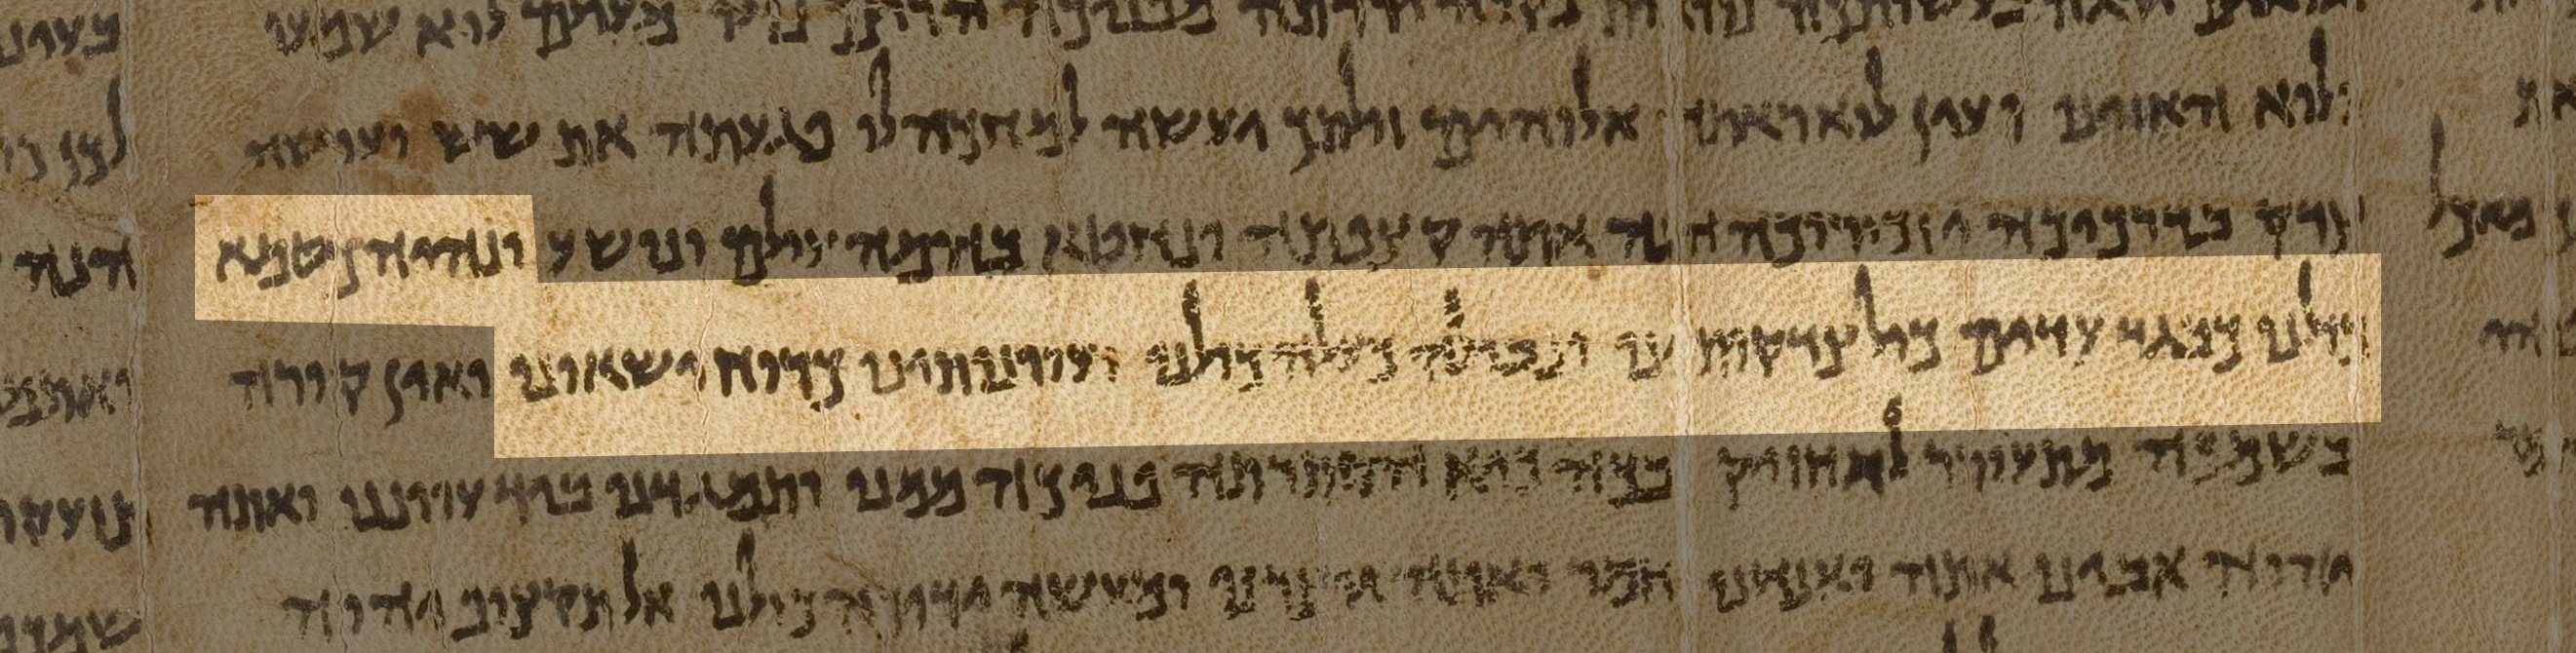 נוראות לוא נקוה ירדתה מפניכה הרים נזלו מעולם לוא שמעו
ולוא האזינו ועין לא ראתה אלוהים זולתך יעשה למחכה לו פגעתה את שש ועושה
צדק בדרכיכה יזכורוכה הנה אתה קצפתה ונחטא בהמה עולם ונושע ונהיה כטמא
כולנו וכבגד עדים כול צדקותינו ונבולה כעלה כולנו ועוונותינו כרוח ישאונו ואין קורה
בשמכה מתעורר להחזיק בכה כיא הסתרתה פניכה ממנו ותמגדנו ביד עווננו ואתה
יהוה אבינו אתה ואנחנו חמר ואתה יוצרנו ומעשה ידיך כולנו אל תקצוף יהוה